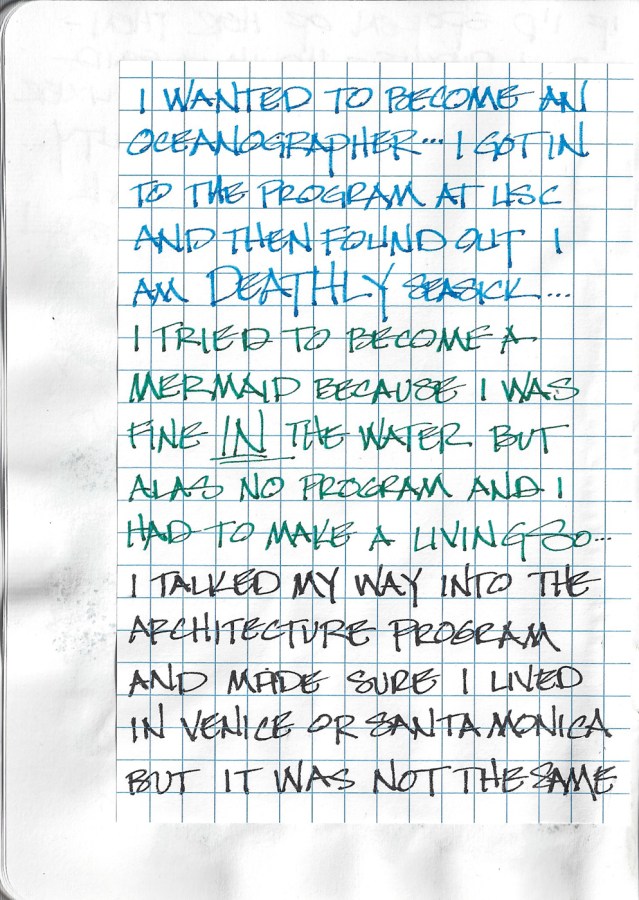 I WANTED TO BECOME AN
OCEANOGRAPHER... I GOT IN
TO THE PROGRAM AT USC
AND THEN FOUND OUT I
AM DEATHLY SEASICK...
I TRIED TO BECOME A
MERMAID BECAUSE I WAS
FINE IN THE WATER BUT
ALAS NO PROGRAM AND I
HAD TO MAKE A LIVING SO...
I TALKED MY WAY INTO THE
ARCHITECTURE PROGRAM
AND MADE SURE I LIVED
IN VENICE OR SANTA MONICA
BUT IT WAS NOT THE SAME